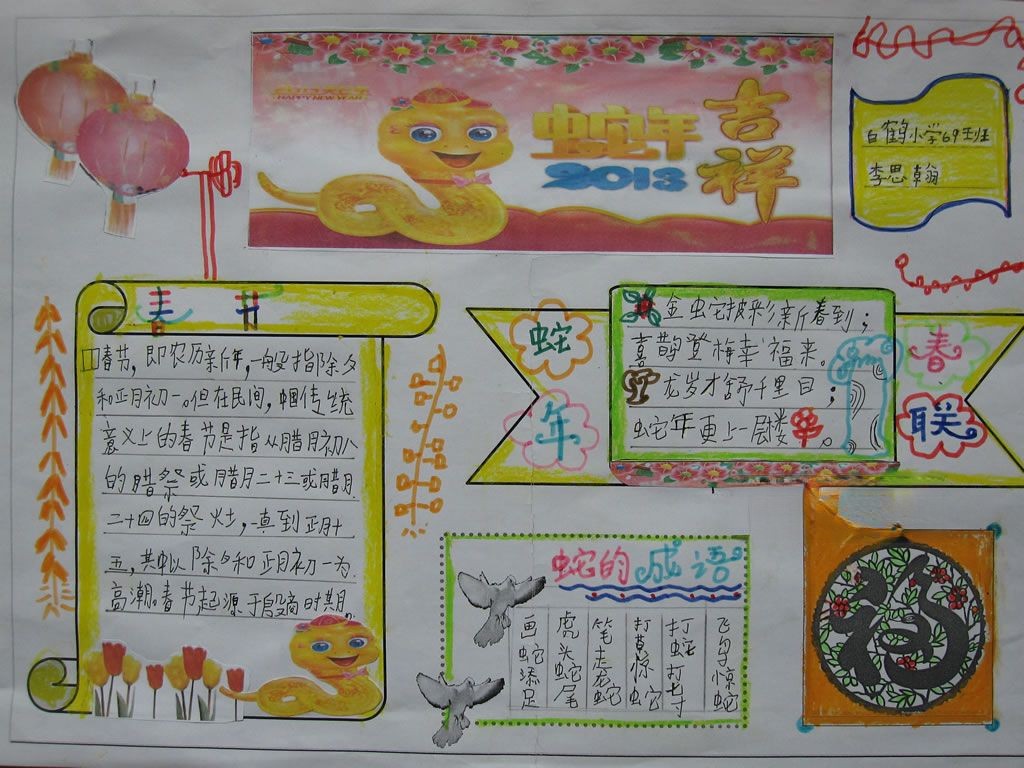 HAPPY NEW YEAR
蛇年
2013
吉祥
白鹤小学69班
李思翰
春节
春节，即农历亲新年，一般指除夕
和正月初一。但在民间，中国传统
意义上的春节是指从腊月初八
的腊祭或腊月二十三或腊月
二十四的祭灶，一直到正月十
五，其中以除夕和正月初一为
高潮。春节起源于殷商时期
蛇年
金蛇披彩新春到；
喜鹊登梅幸福来。
龙岁才舒千里目；
蛇年更上一层楼。
春联
蛇的成语
画蛇添足
虎头蛇尾
笔走龙蛇
打草惊蛇
打蛇打七寸
飞鸟惊蛇
福